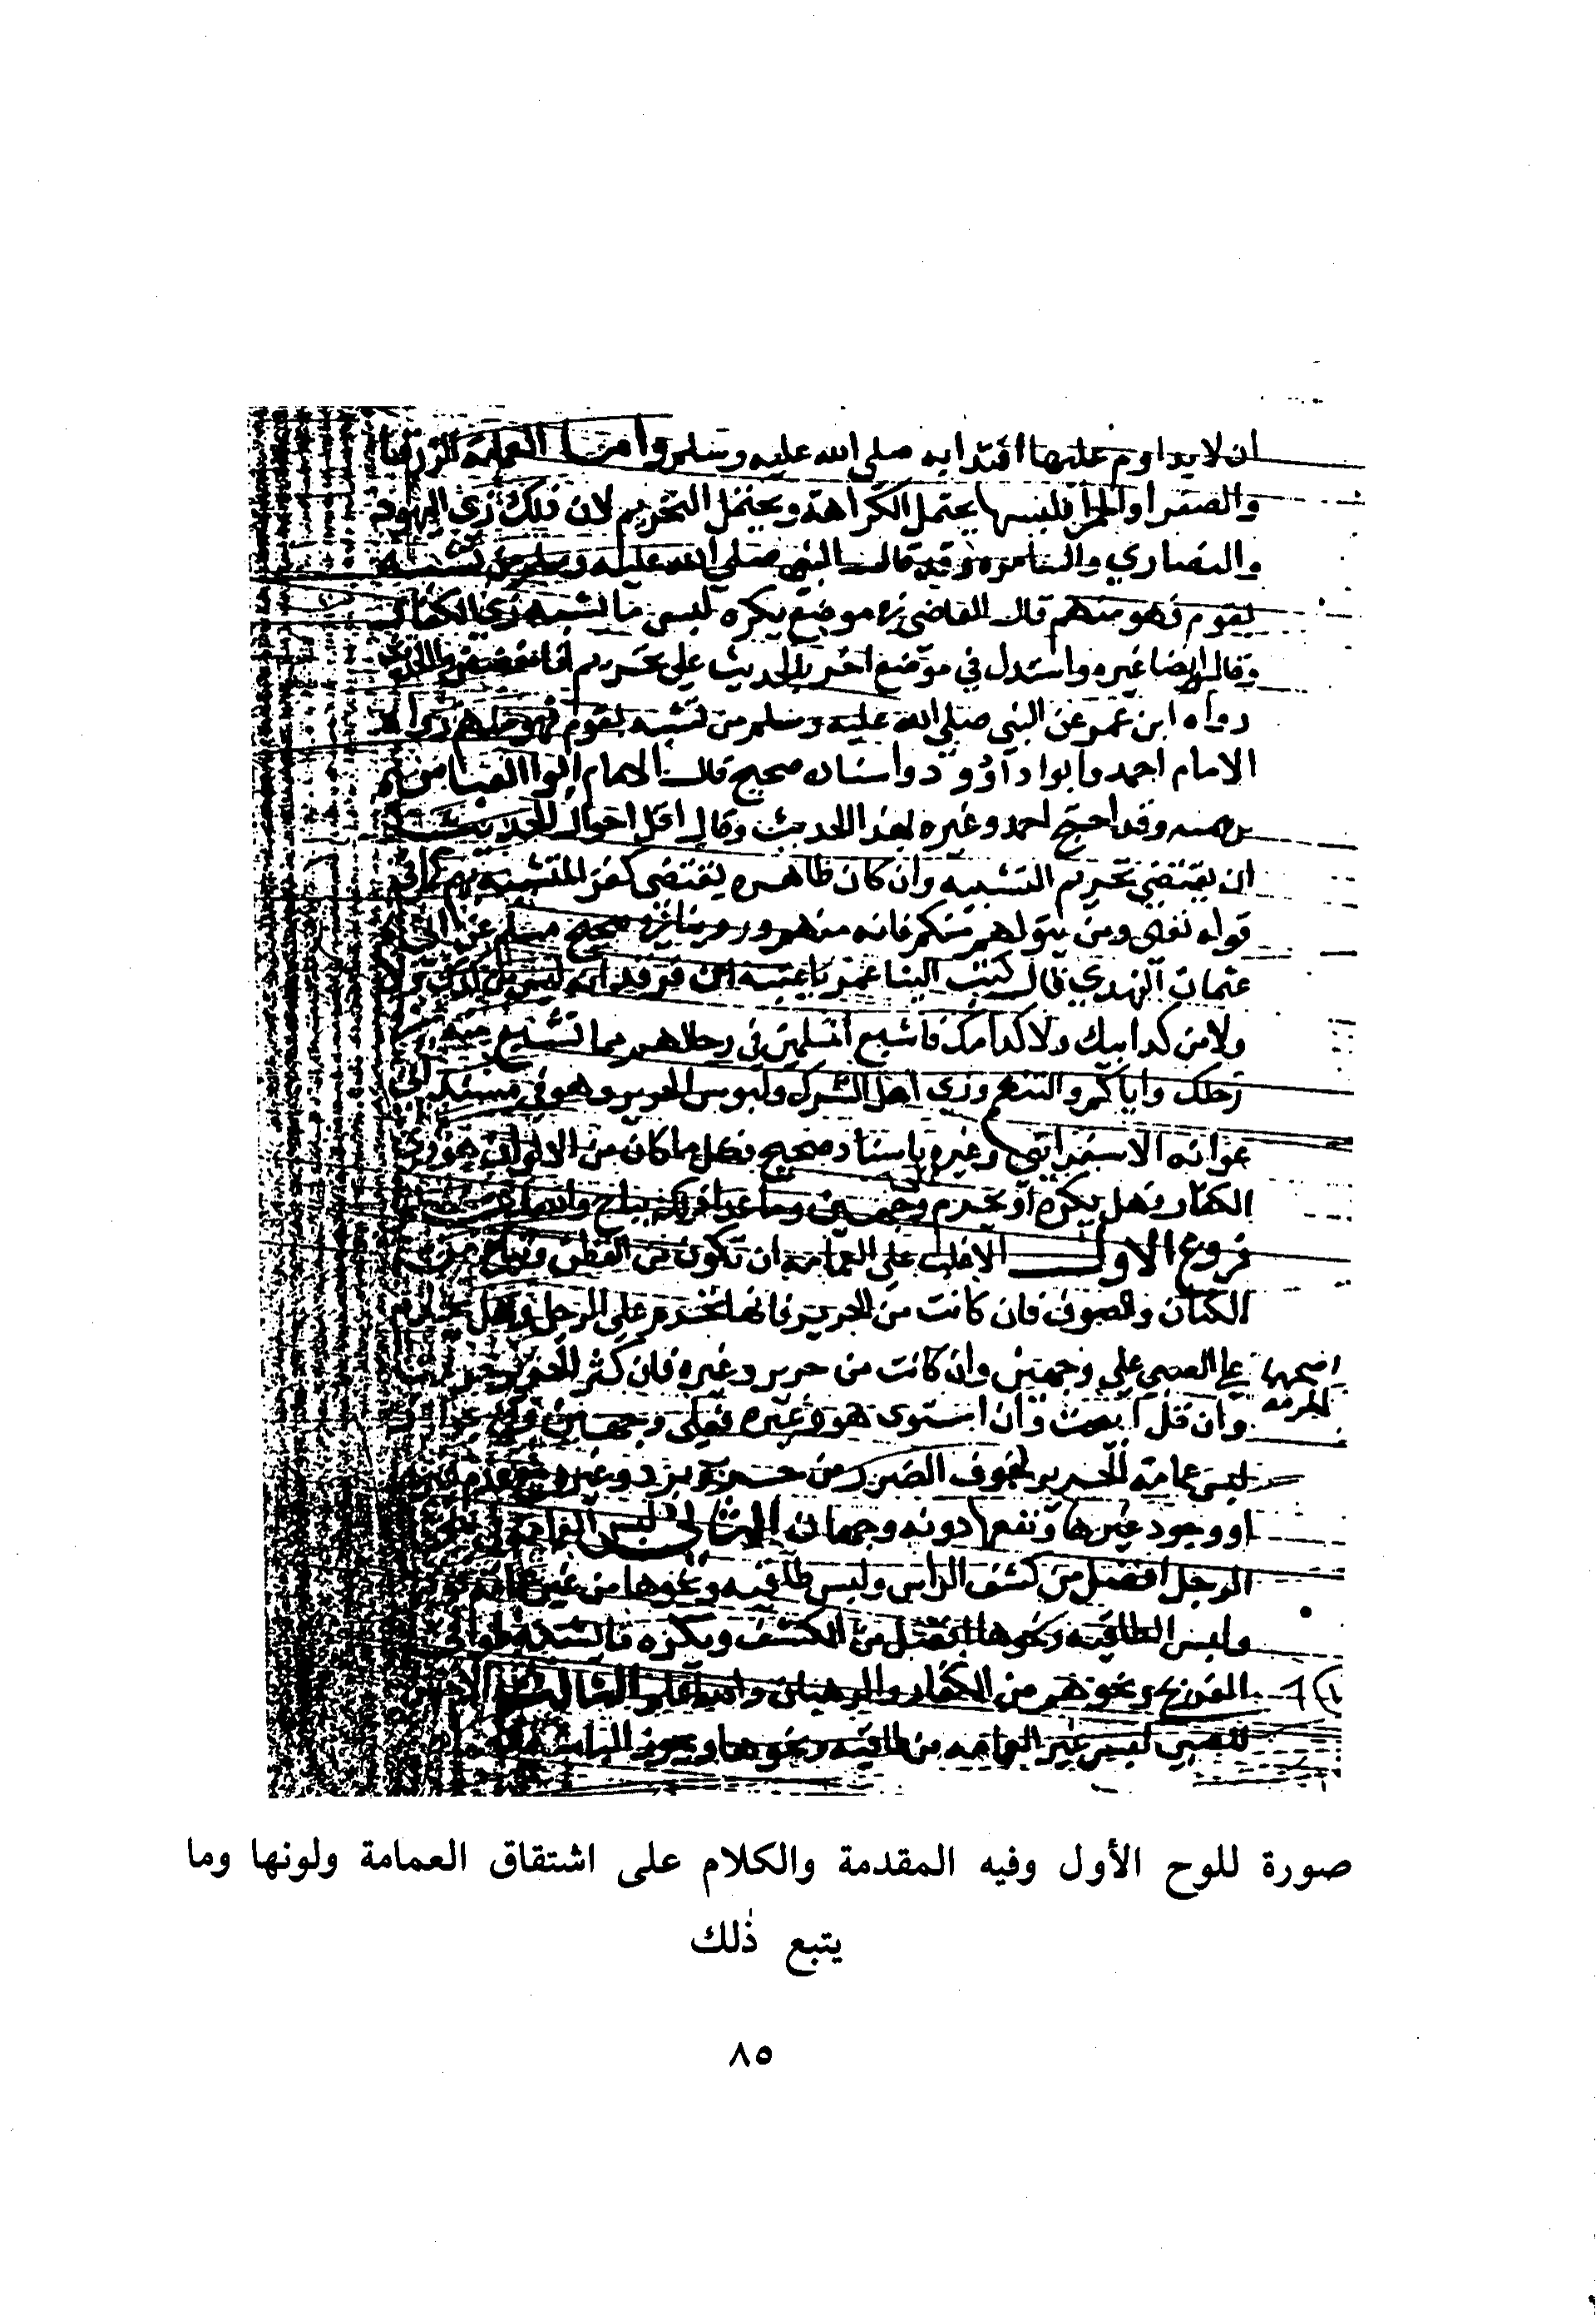 ان لا يداوم عليها اقتدا به صلى الله عليه وسلم واما العمامة الزرقا
والصفرا والحمرا فلبسها يحتمل الكراهة ويحتمل التحريم لان ذلك زي اليهود
والنصاري والسامره وقد قال النبي صلى الله عليه وسلم من تشبه
بقوم فهو منهم قال القاضي في موضع يكره لبس ما يشبه زي الكفار
وقال ايضا غيره واستدل في موضع اخر بالحديث على تحريم
رواه ابن عمر عن النبي صلى الله عليه وسلم من تشبه بقوم فهو منهم رواه
الامام احمد وابوا داوود واسناده صحيح قال الامام ابوا العباس
وقد احتج احمد وغيره بهذا الحديث وقال اقل احوال الحديث
ان يقتضي تحريم التشبيه وان كان ظاهره يقتضي كفر المتشبه بهم كما في
قوله تعالى ومن يتولهم منكم فانه منهم وروينا في صحيح مسلم عن ابي
عثمان النهدي قال كتب الينا عمر يا عتبه ابن فرقد انه ليس من كدك ولا
ولا من كد ابيك ولا كد امك فاشبع المسلمين في رحالهم مما تشبع منه في
رحلك واياكم والتنعم وزي اهل الشرك ولبوس الحرير وهو في مسند ابي
عوانه الاسفرايني وغيره باسناد صحيح فكل ما كان من الالوان هو زي
الكفار فهل يكره او يحرم وجهين وما عدا ذلك يباح والله اعلم
فروع الاول الاغلب على العمامه ان تكون من القطن وتباح من
الكتان والصوف فان كانت من الحرير فانها تحرم على الرجل وهل تحرم
على الصبي على وجهين وان كانت من حرير وغيره فان كثر الحرير حرم
اصحهما
الحرمه
وان قل ابيحت وان استوى هو وغيره فعلى وجهين وفي جواز
لبس عمامة الحرير لخوف الضرر من حر وبرد وغيره مع عدم غيره
او وجود غيرها ونفعها دونه وجهان الثاني لبس العمامة في حق
الرجل افضل من كشف الراس ولبس طاقيه ونحوها من غير عمامه
ولبس الطاقيه ونحوها افضل من الكشف ويكره ما يشبه طواقي
الفرنج ونحوهم من الكفار والرهبان والله اعلم الثالث
للصبي لبس غير العمامه من طاقيه ونحوها ويجوز الباسه
صورة للوح الأول وفيه المقدمة والكلام على اشتقاق العمامة ولونها وما
يتبع ذٰلك
٨٥